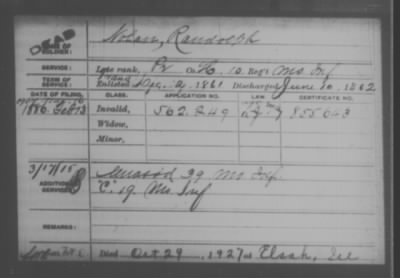 DEAD
NAME OF SOLDIER: Nolan, Randolph
SERVICE: Late rank, Pr Co. H, 10 Reg't Mo Inf
TERM OF SERVICE: Enlisted Aug. 1861 Discharged June 10, 1862
DATE OF FILING. CLASS. APPLICATION NO. LAW CERTIFICATE NO.
1886 Feb 13 Invalid, 562.249 855043
Widow,
Minor,
3/17/15
ADDITIONAL SERVICES: 39 Mo Inf.
"C" 19 Mo Inf
REMARKS:
Died Oct 29, 1927 at Elsah, Ill